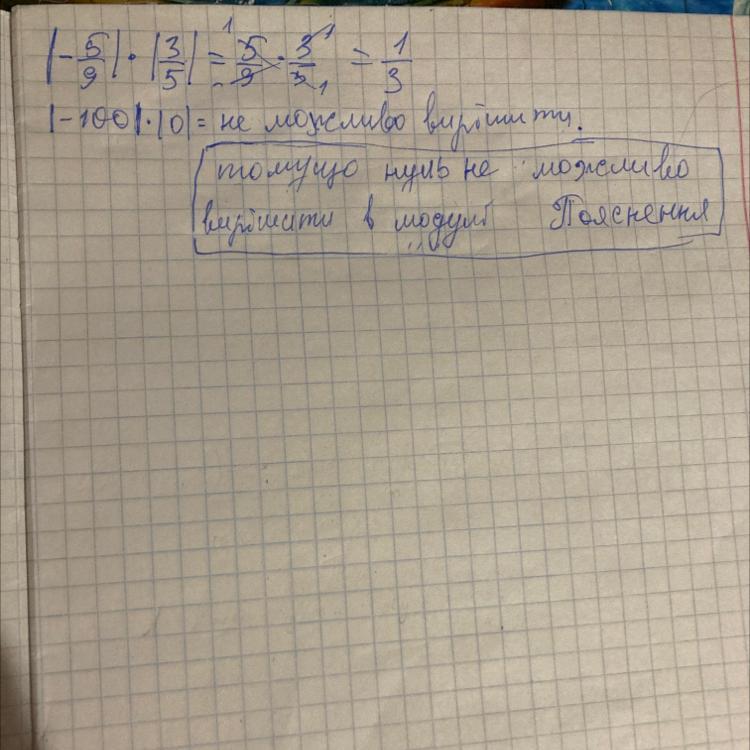 |-5/9| · |3/5| = 5/9 · 3/5 = 1/3
|-100|·|0| = не можливо вирішити.
томущо нуль не можливо
вирішити в модулі Пояснення